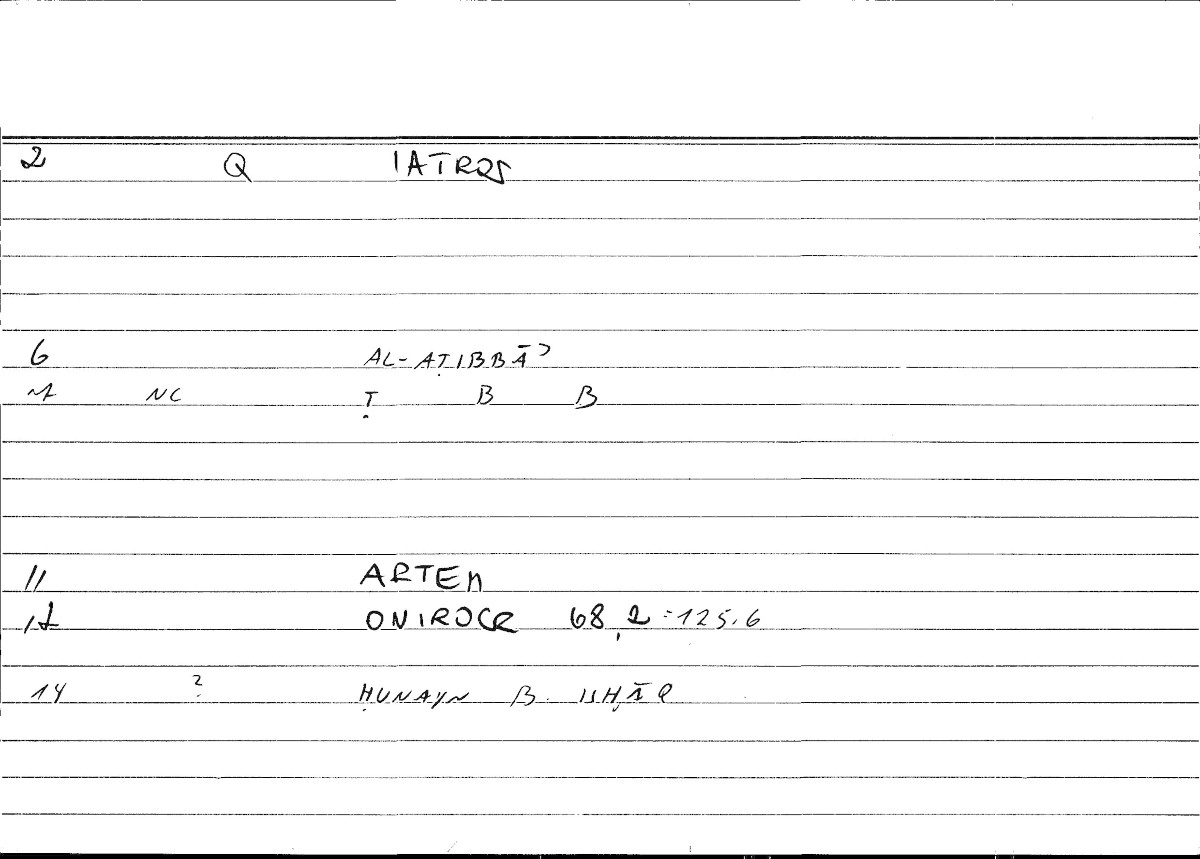 2 Q IATROS
6 AL-AṬIBBĀʾ
7 NC Ṭ B B
11 ARTEM
12 ONIROCR 68,2 = 125.6
14 ? ḤUNAYN B. ISḤĀQ